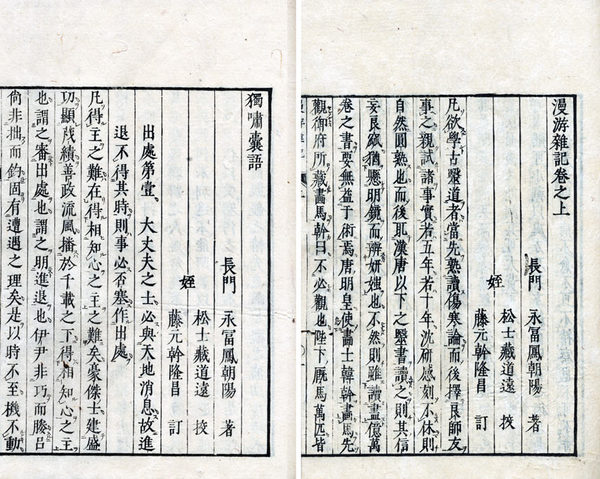 漫游雜記卷之上
長門 永冨鳳朝陽 著
松士藏道遠 挍
姪
藤元幹隆昌 訂
凡欲學古醫道者當先熟讀傷寒論而後擇良師友
事之親試諸事實若五年若十年沈研感刻不休則
自然圓熟也而後取漢唐以下之醫書讀之則其信
妄良窳猶懸明鏡而辨妍媸也不然則雖讀盡億萬
卷之書要無益于術焉唐明皇使畫士韓幹畫馬先
觀御府所藏畫馬幹曰不必觀也陛下厩馬萬匹皆
獨嘯囊語
長門 永冨鳳朝陽 著
松士藏道遠 挍
姪
藤元幹隆昌 訂
出處第壹 大丈夫之士必與天地消息故進
退不得其時則事必否塞作出處
凡得主之難在得相知心之主之難矣豪傑士建盛
功顯茂績善政流風播於千載之下得相知心之主
也謂之審出處也謂之明進退也伊尹非巧而媵呂
尚非拙而釣固有遭遇之理矣是以時不至機不動